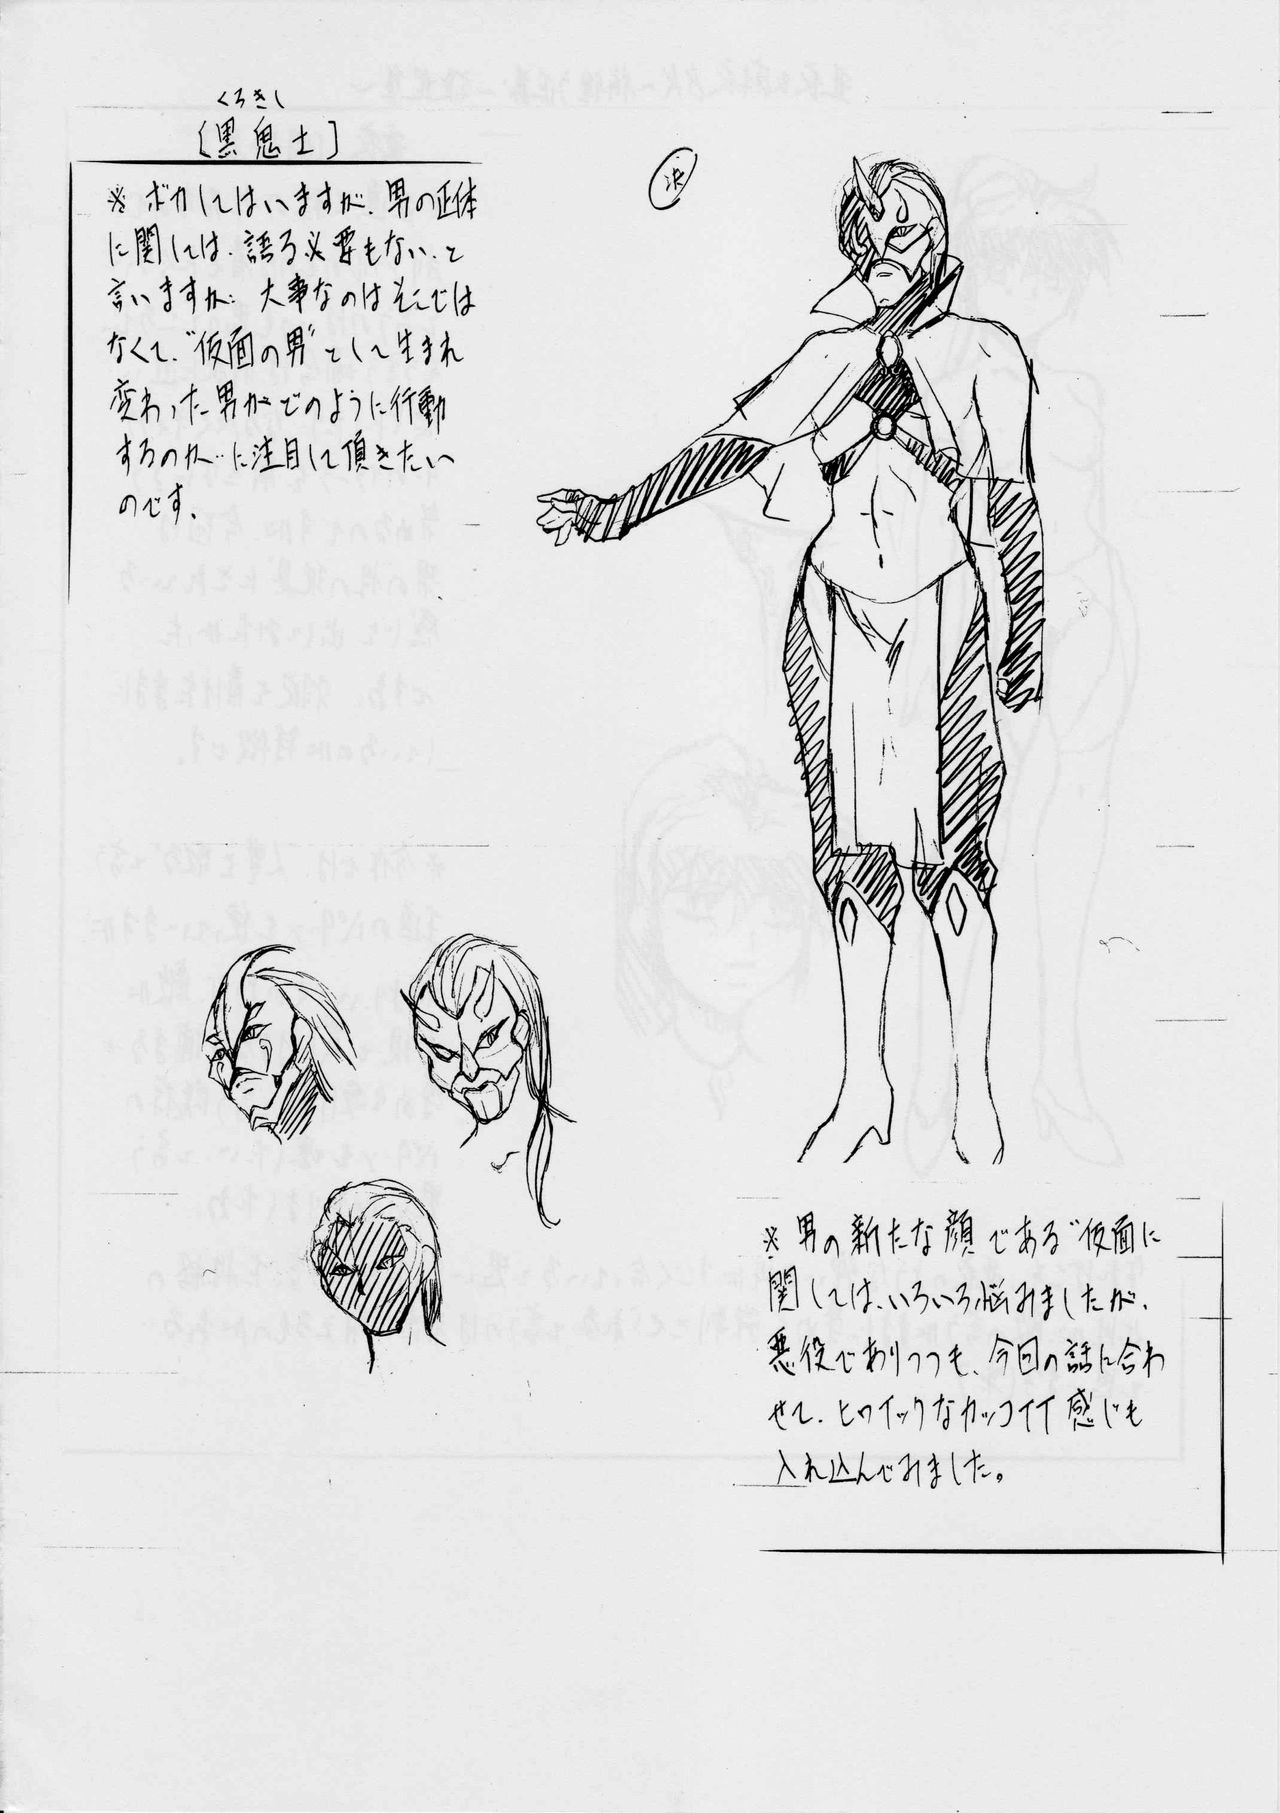 くろきし
〔黒鬼士〕
※ ボカしてはいますが、男の正体
に関しては、語る必要もない、と
言いますか… 大事なのはそこでは
なくて、"仮面の男"として生まれ
変わった男がどのように行動
するのか…に注目して頂きたい
のです。
決
※ 男の新たな顔である"仮面に
関しては、いろいろ悩みましたが、
悪役でありつつも、今回の話に合わ
せて、ヒロイックなカッコイイ感じも
入れ込んでみました。